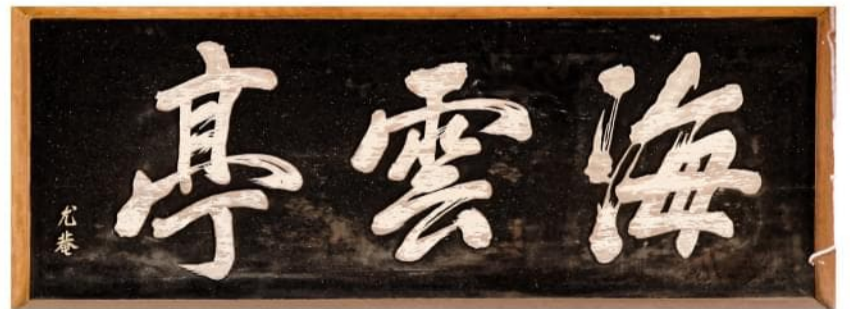 海雲亭
尤菴